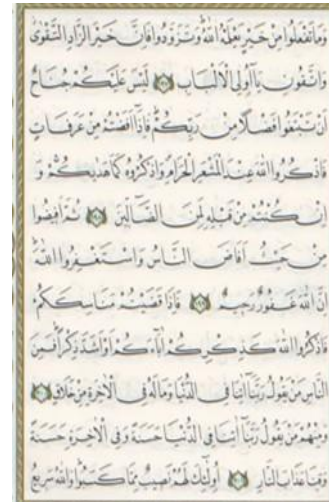 وَمَا تَفْعَلُوا مِنْ خَيْرٍ يَعْلَمْهُ اللّٰهُ وَتَزَوَّدُوا فَاِنَّ خَيْرَ الزَّادِ التَّقْوٰى
وَاتَّقُونِ يَٓا اُو۬لِي الْاَلْبَابِ ﴿١٩٧﴾ لَيْسَ عَلَيْكُمْ جُنَاحٌ
اَنْ تَبْتَغُوا فَضْلًا مِنْ رَبِّكُمْ فَاِذَٓا اَفَضْتُمْ مِنْ عَرَفَاتٍ
فَاذْكُرُوا اللّٰهَ عِنْدَ الْمَشْعَرِ الْحَرَامِ وَاذْكُرُوهُ كَمَا هَدٰيكُمْ وَ
اِنْ كُنْتُمْ مِنْ قَبْلِهِ لَمِنَ الضَّٓالّ۪ينَ ﴿١٩٨﴾ ثُمَّ اَف۪يضُوا
مِنْ حَيْثُ اَفَاضَ النَّاسُ وَاسْتَغْفِرُوا اللّٰهَ
اِنَّ اللّٰهَ غَفُورٌ رَح۪يمٌ ﴿١٩٩﴾ فَاِذَا قَضَيْتُمْ مَنَاسِكَكُمْ
فَاذْكُرُوا اللّٰهَ كَذِكْرِكُمْ اٰبَٓاءَكُمْ اَوْ اَشَدَّ ذِكْرًا فَمِنَ
النَّاسِ مَنْ يَقُولُ رَبَّنَٓا اٰتِنَا فِي الدُّنْيَا وَمَا لَهُ فِي الْاٰخِرَةِ مِنْ خَلَاقٍ ﴿٢٠٠﴾
وَمِنْهُمْ مَنْ يَقُولُ رَبَّنَٓا اٰتِنَا فِي الدُّنْيَا حَسَنَةً وَفِي الْاٰخِرَةِ حَسَنَةً
وَقِنَا عَذَابَ النَّارِ ﴿٢٠١﴾ اُو۬لٰٓئِكَ لَهُمْ نَص۪يبٌ مِمَّا كَسَبُوا وَاللّٰهُ سَر۪يعُ